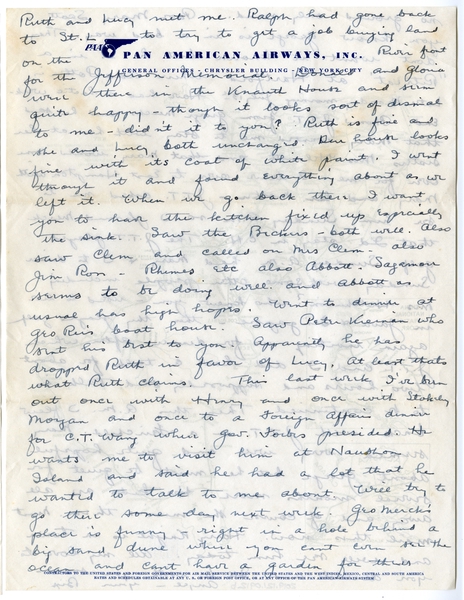 Ruth and Lucy met me. Ralph had gone back
to St. L to try to get a job buying land
PAA
PAN AMERICAN AIRWAYS, INC.
on the River front
GENERAL OFFICES - CHRYSLER BUILDING - NEW YORK CITY
for the Jefferson Memorial. and Gloria
were there in the Knauth House and seem
quite happy - though it looks sort of dismal
to me - didn't it to you? Ruth is fine and
she and Lucy both unchanged. Our house looks
fine with its coat of white paint. I went
through it and found everything about as we
left it. When we go back there I want
you to have the kitchen fixed up especially
the sink. Saw the Bickers - both well. Also
saw Clem and called on Mrs Clem. also
Jim Ron - Rhimes etc also Abbott. Sagamore
seems to be doing well and Abbott as
usual has high hopes. Went to dinner at
Geo Reis boat house. Saw Peter Kiernan who
sent his best to you. Apparently he has
dropped Ruth in favor of Lucy. At least thats
what Ruth claims. This last week I've been
out once with Henry and once with Stokely
Morgan and once to a Foreign Affairs dinner
for C.T. Wang where Gov. Forbes presided. He
wants me to visit him at Naushon
Island and said he had a lot that he
wanted to talk to me about. Will try to
go there some day next week. Geo Merck's
place is funny - right in a hole behind a
big sand dune where you cant even see the
ocean and cant have a garden for their
CONTRACTORS TO THE UNITED STATES AND FOREIGN GOVERNMENTS FOR AIR MAIL SERVICE BETWEEN THE UNITED STATES AND THE WEST INDIES, MEXICO, CENTRAL AND SOUTH AMERICA
RATES AND SCHEDULES OBTAINABLE AT ANY U. S. OR FOREIGN POST OFFICE, OR AT ANY OFFICE OF THE PAN AMERICAN AIRWAYS SYSTEM